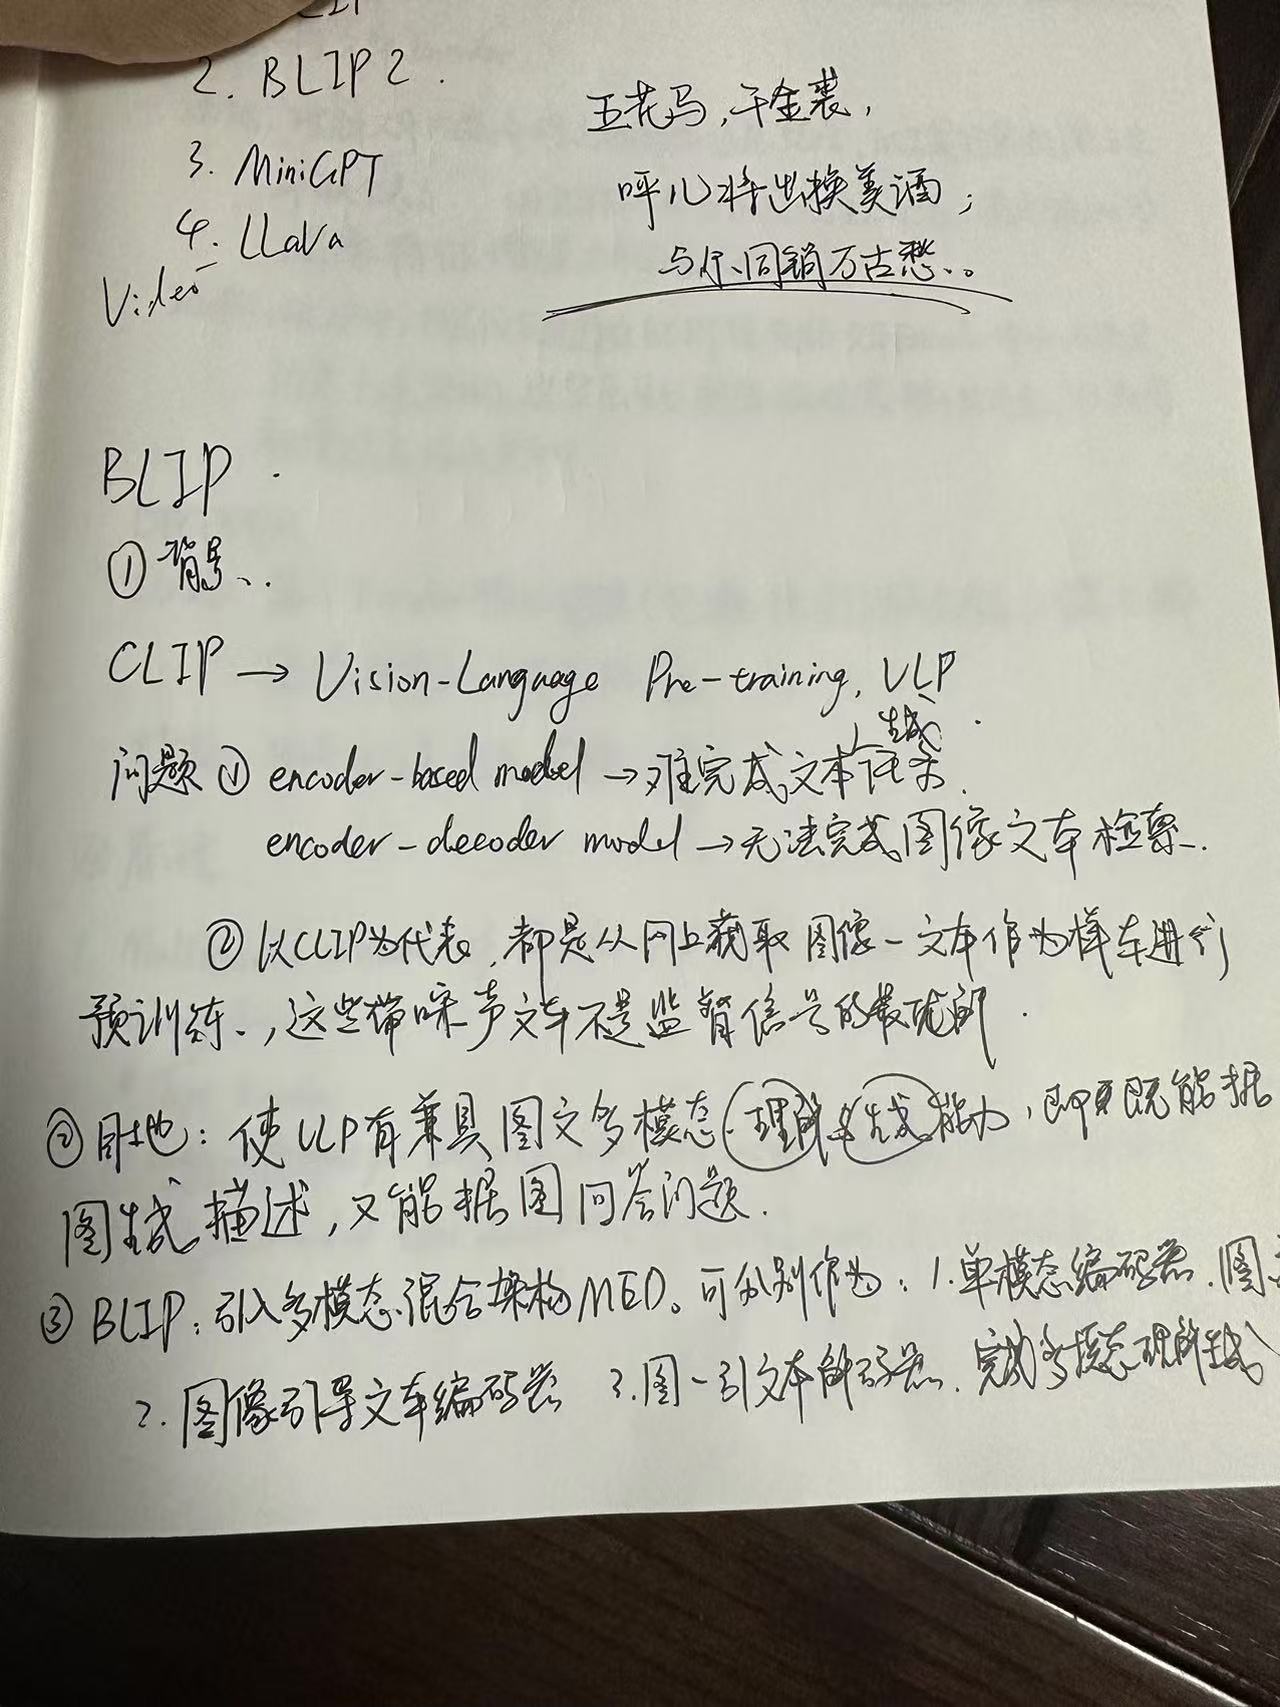 2. BLIP2.
3. MiniGPT
4. LLaVa
Video
五花马,千金裘,
呼儿将出换美酒;
与尔同销万古愁。
BLIP.
① 背景.
CLIP → Vision-Language Pre-training, VLP
问题 ① encoder-based model → 难完成文本生成任务.
encoder-decoder model → 无法完成图像文本检索.
② 以CLIP为代表,都是从网上获取图像-文本作为样本进行
预训练,这些带噪声文本不是监督信号的最优的.
② 目地:使VLP有兼具图文多模态理解&生成能力,即既能据
图生成描述,又能据图问答问题.
③ BLIP:引入多模态混合架构MED。可分别作为:1.单模态编码器.图
2.图像引导文本编码器 3.图-引文本解码器.完成多模态理解生成